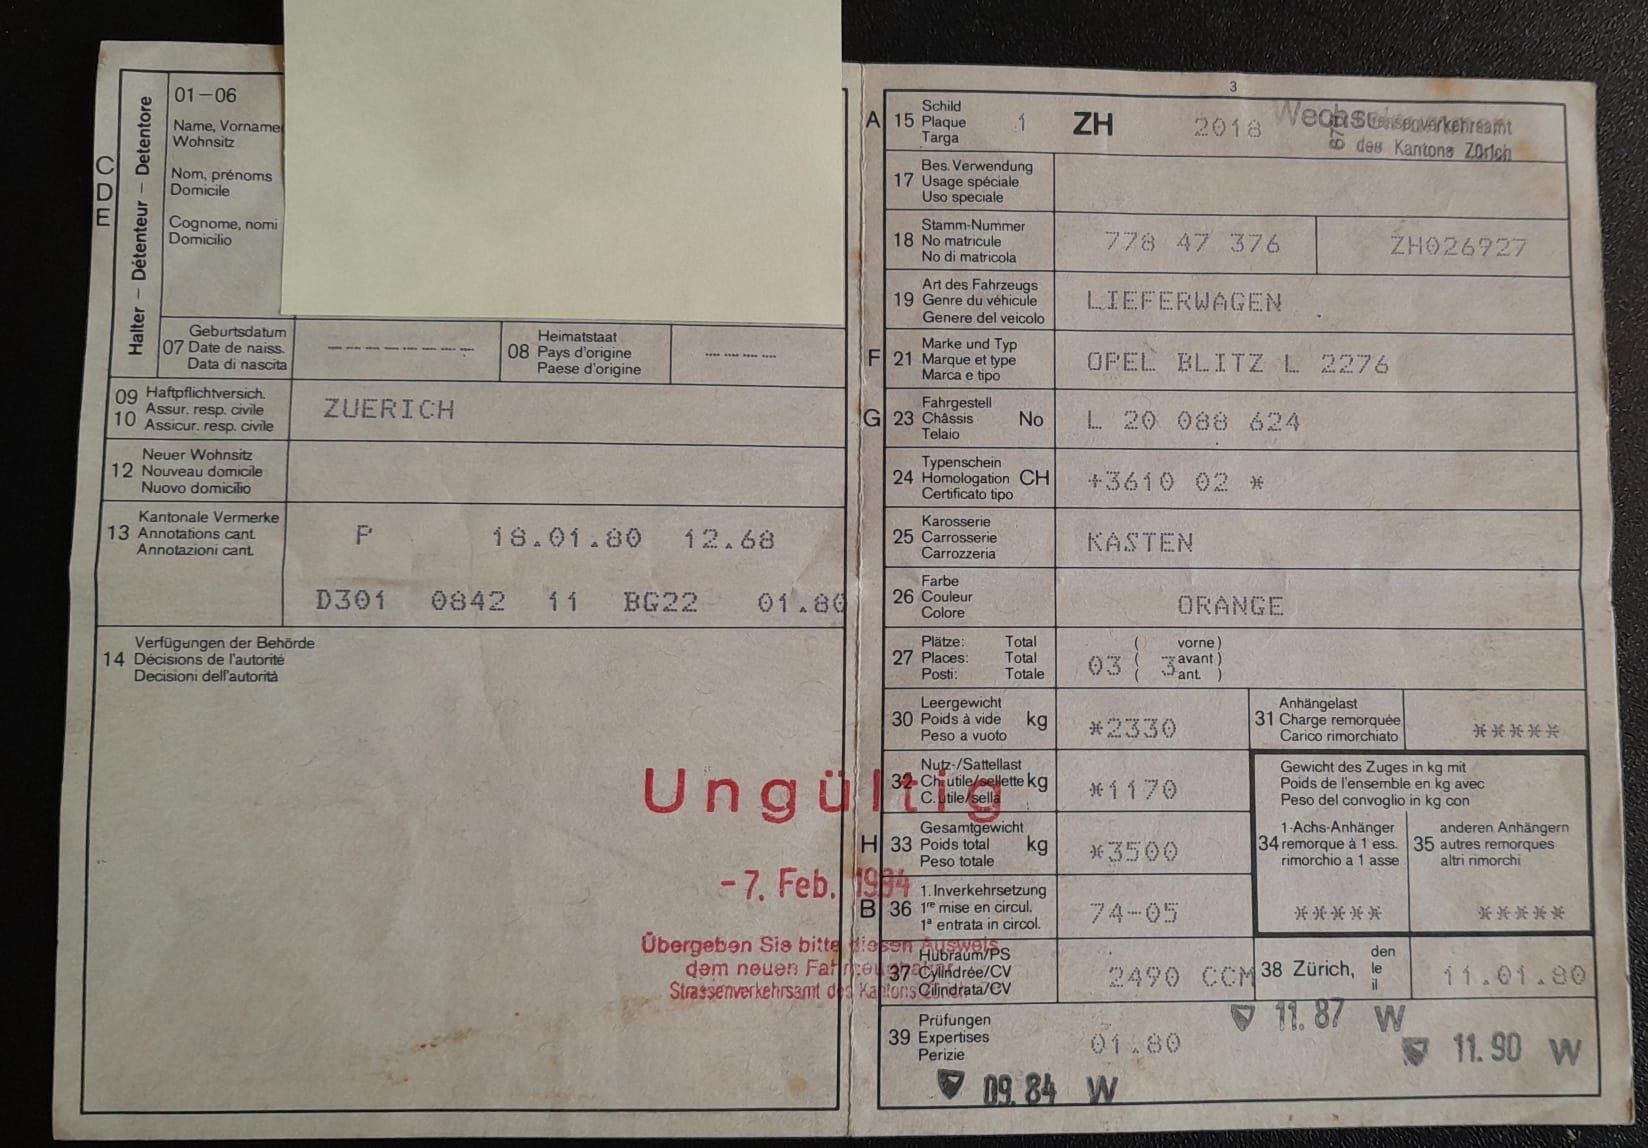 C
D
E
Halter – Détenteur – Detentore
01–06
Name, Vorname
Wohnsitz
Nom, prénoms
Domicile
Cognome, nomi
Domicilio
07 Geburtsdatum
Date de naiss.
Data di nascita
--------
08 Heimatstaat
Pays d'origine
Paese d'origine
----
09 Haftpflichtversich.
10 Assur. resp. civile
Assicur. resp. civile
ZUERICH
12 Neuer Wohnsitz
Nouveau domicile
Nuovo domicilio
13 Kantonale Vermerke
Annotations cant.
Annotazioni cant.
P 18.01.80 12.68
D301 0842 11 BG22 01.80
14 Verfügungen der Behörde
Décisions de l'autorité
Decisioni dell'autorità
Ungültig
-7. Feb. 1994
Übergeben Sie bitte diesen Ausweis
dem neuen
Strassenverkehrsamt des Kantons Zürich
3
A 15 Schild
Plaque
Targa
1 ZH 2018
Strassenverkehrsamt
des Kantons Zürich
17 Bes. Verwendung
Usage spéciale
Uso speciale
18 Stamm-Nummer
No matricule
No di matricola
778 47 376 ZH026927
19 Art des Fahrzeugs
Genre du véhicule
Genere del veicolo
LIEFERWAGEN
F 21 Marke und Typ
Marque et type
Marca e tipo
OPEL BLITZ L 2276
G 23 Fahrgestell
Châssis No
Telaio
L 20 088 624
24 Typenschein
Homologation CH
Certificato tipo
+3610 02 *
25 Karosserie
Carrosserie
Carrozzeria
KASTEN
26 Farbe
Couleur
Colore
ORANGE
27 Plätze: Total ( vorne )
Places: Total 03 ( 3 avant )
Posti: Totale ( ant. )
30 Leergewicht
Poids à vide kg
Peso a vuoto
*2330
31 Anhängelast
Charge remorquée
Carico rimorchiato
*****
32 Nutz-/Sattellast
Ch. utile/sellette kg
C. utile/sella
*1170
Gewicht des Zuges in kg mit
Poids de l'ensemble en kg avec
Peso del convoglio in kg con
H 33 Gesamtgewicht
Poids total kg
Peso totale
*3500
34 1-Achs-Anhänger
remorque à 1 ess.
rimorchio a 1 asse
*****
35 anderen Anhängern
autres remorques
altri rimorchi
*****
B 36 1. Inverkehrsetzung
1re mise en circul.
1a entrata in circol.
74-05
37 Hubraum/PS
Cylindrée/CV
Cilindrata/CV
2490 CCM
38 Zürich, den
le
il
11.01.80
39 Prüfungen
Expertises
Perizie
01.80
11.87 W
11.90 W
09.84 W